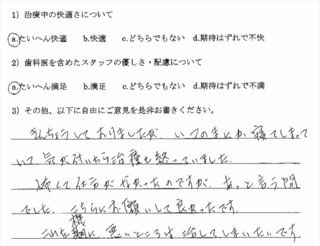 1) 治療中の快適さについて
a.たいへん快適 b.快適 c.どちらでもない d.期待はずれで不快
2) 歯科医を含めたスタッフの優しさ・配慮について
a.たいへん満足 b.満足 c.どちらでもない d.期待はずれで不満
3) その他、以下に自由にご意見を是非お書きください。
きんちょうしておりましたが、いつのまにか寝てしまって
いて気が付いたら治療も終っていました。
怖くて仕方がなかったのですが、あっと言う間
でした。こちらにお願いして良かったです。
これを機に、悪いところは治してしまいたいです。